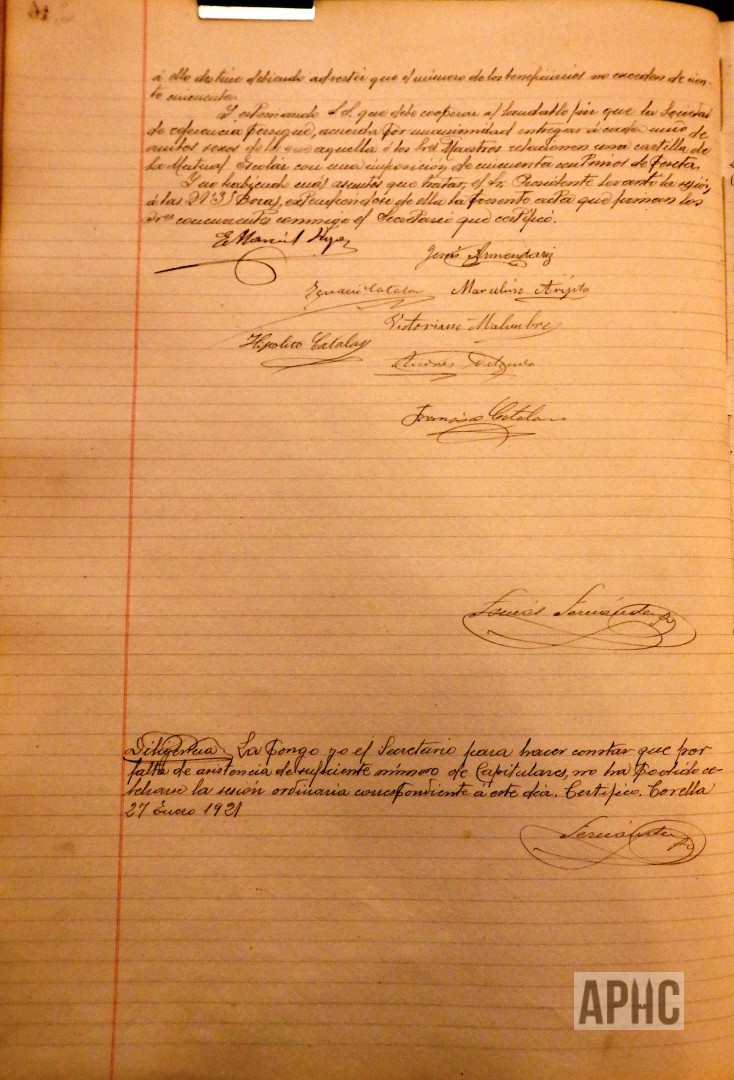 á ello destino debiendo advertir que el número de los beneficiarios no excedan de cien-
to cincuenta.
Y estimando S.S. que debe cooperar al laudable fin que la Sociedad
de referencia persigue, acuerda por unanimidad entregar á cada uno de
ambos sexos de lo que aquella ó los Sres Maestros relacionen una cartilla de
la Mutual Escolar con una imposición de cincuenta centimos de peseta.
Y no habiendo más asuntos que tratar, el Sr. Presidente levantó la sesión,
á las horas, extendiéndose de ella la presente acta que firman los
Sres concurrentes conmigo el Secretario que certifico.
Jesús Armendariz
Ignacio Catalan Marcelino
Victoriano Malumbres
Hipolito Catalan
Andrés
Francisco Catalan
Fernández
Diligencia. La pongo yo el Secretario para hacer constar que por
falta de asistencia de suficiente número de Capitulares, no ha podido ce-
lebrarse la sesión ordinaria correspondiente á este día. Certifico. Corella
27 Enero 1921
Fernández
APHC